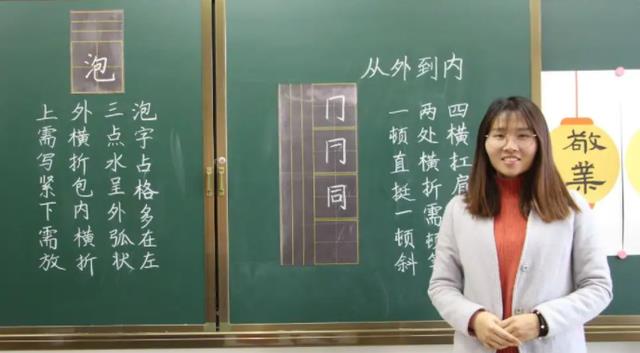 泡
泡字占格多在左
三点水呈外弧状
外横折包内横折
上需写紧下需放
从外到内
冂
同
四横扛肩
两处横折需顿
一顿直挺一顿斜
敬業